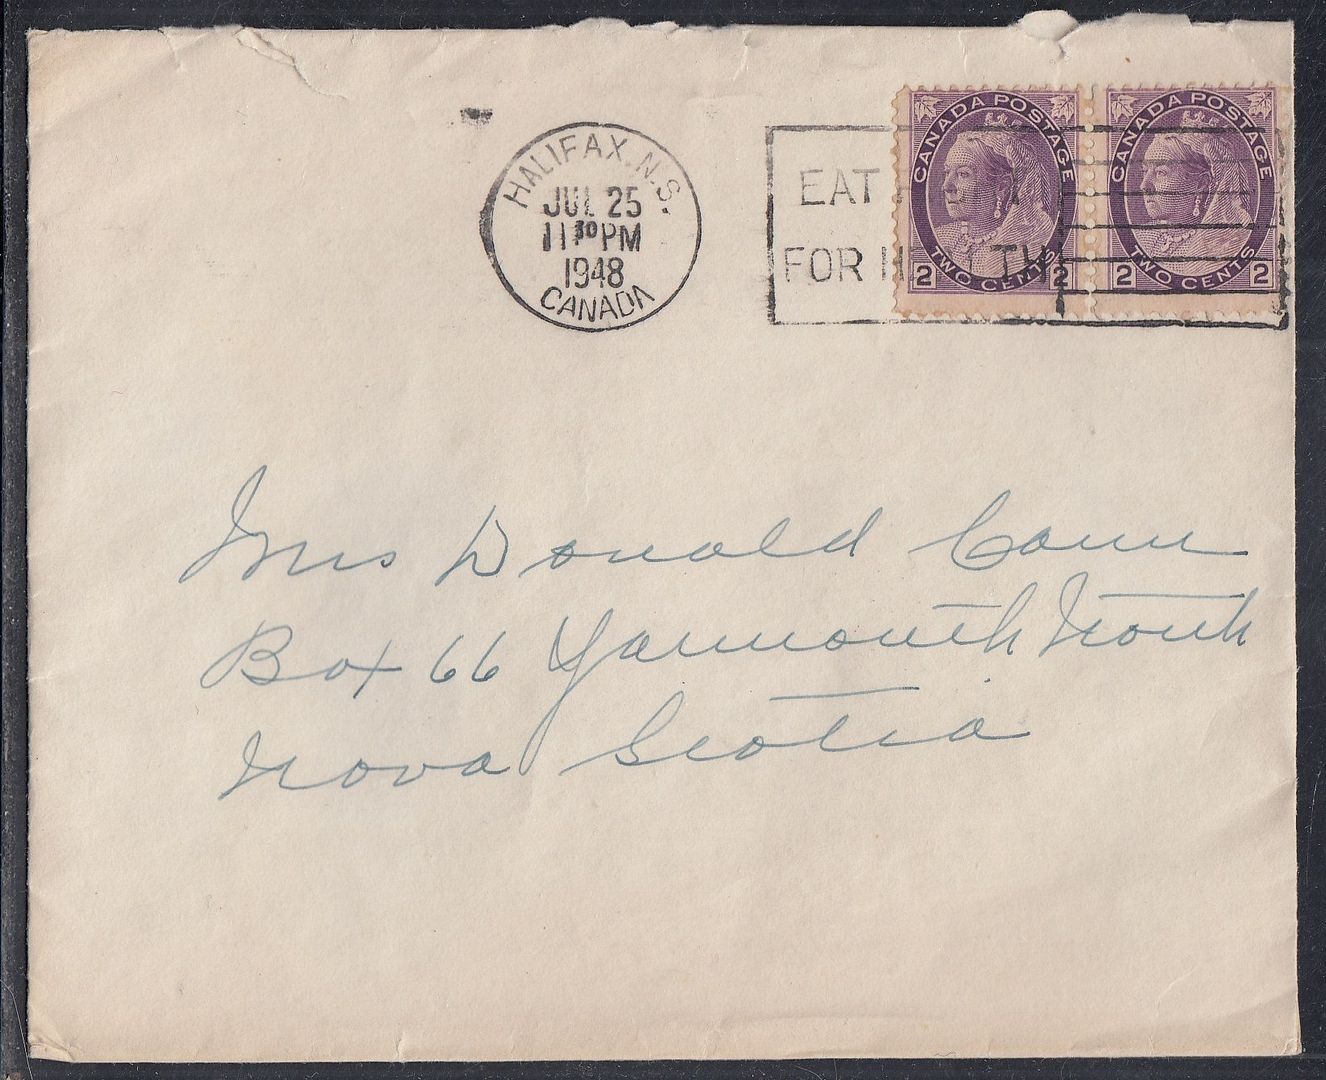 HALIFAX, N.S.
JUL 25
11 30 PM
1948
CANADA
EAT
FOR HEALTH
CANADA POSTAGE
2 TWO CENTS 2
CANADA POSTAGE
2 TWO CENTS 2
Mrs Donald Cann
Box 66 Yarmouth North
Nova Scotia